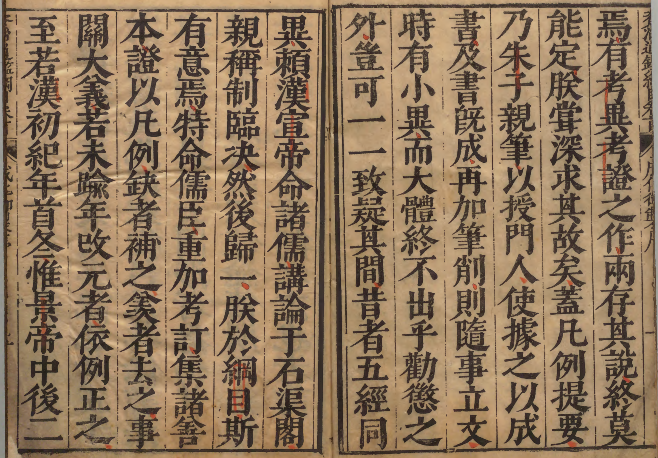 焉有考異考證之作兩存其説終莫
能定朕嘗深求其故矣蓋凡例提要
乃朱子親筆以授門人使據之以成
書及書既成再加筆削則隨事立文
時有小異而大體終不出乎勸懲之
外豈可一一致疑其間昔者五經同
異賴漢宣帝命諸儒講論于石渠閣
親稱制臨決然後歸一朕於綱目斯
有意焉特命儒臣重加考訂集諸善
本證以凡例缺者補之羨者去之事
關大義若未踰年改元者依例正之
至若漢初紀年首冬惟景帝中後二